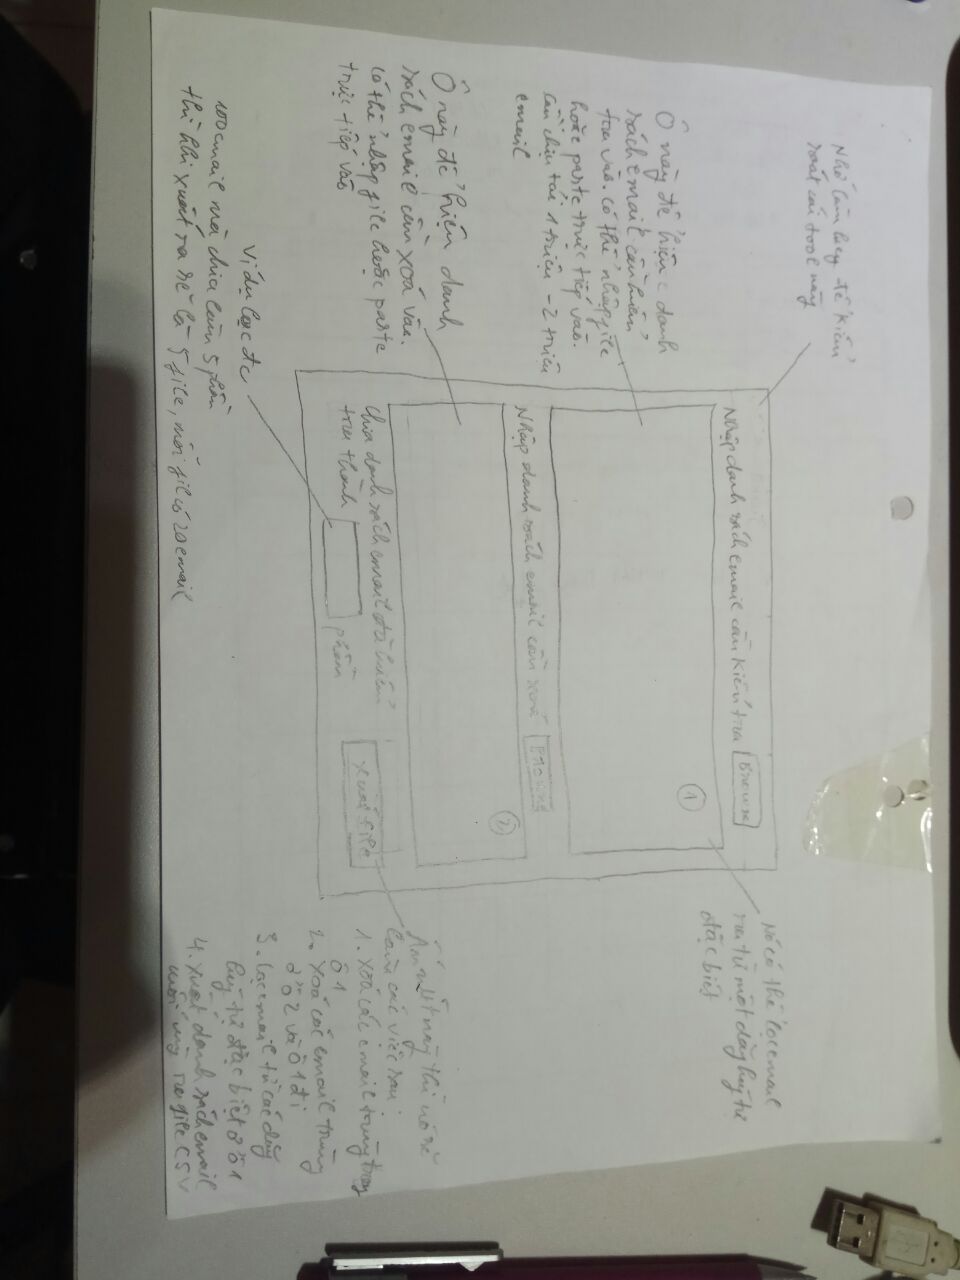 Nhớ làm key để kiểm
soát cái tool này
Ô này để hiện danh
sách email cần kiểm
tra vào. có thể nhập file
hoặc paste trực tiếp vào.
cần chịu tải 1 triệu - 2 triệu
email
Ô này để hiện danh
sách email cần xoá vào.
có thể nhập file hoặc paste
trực tiếp vào
Ví dụ lọc đc
100 email mà chia làm 5 phần
thì khi xuất ra sẽ là 5 file, mỗi file có 20 email
Nhập danh sách email cần kiểm tra
Browse
1
Nhập danh sách email cần xoá
Browse
2
Chia danh sách email đã kiểm
tra thành
phần
Xuất file
Nó có thể lọc email
ra từ một dãy ký tự
đặc biệt
Ấn nút này thì nó sẽ
làm các việc sau:
1. Xoá các email trùng trong
ô 1
2. Xoá các email trùng
ở ô 2 và ô 1 đi
3. Lọc email từ các dãy
ký tự đặc biệt ở ô 1
4. Xuất danh sách email
cuối cùng ra file CSV